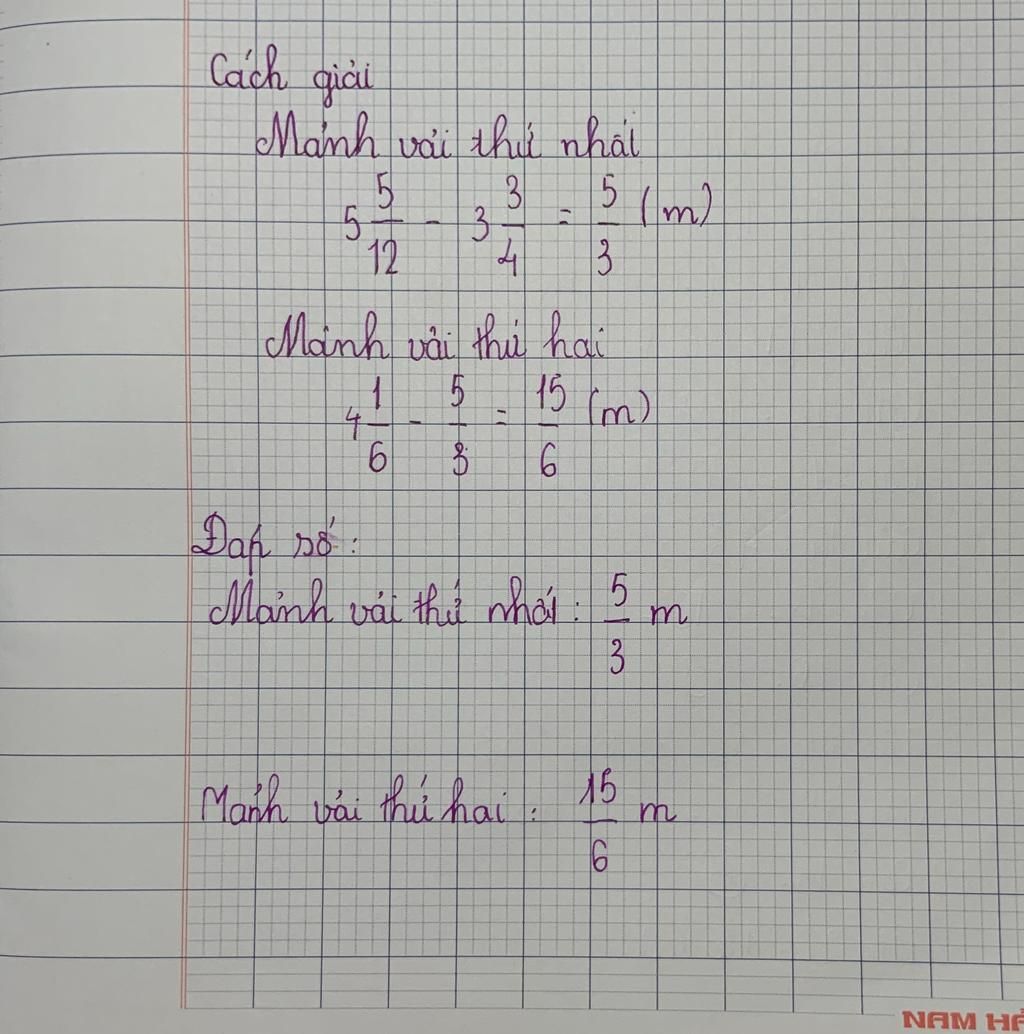 Cách giải
Mảnh vải thứ nhất
5 5/12 - 3 3/4 = 5/3 (m)
Mảnh vải thứ hai
4 1/6 - 5/3 = 15/6 (m)
Đáp số:
Mảnh vải thứ nhất: 5/3 m
Mảnh vải thứ hai: 15/6 m